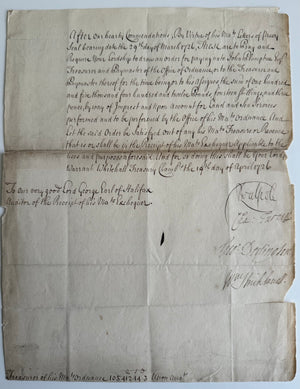 After our hearty Commendations, By Virtue of his Ma.ts Letters of Privy
Seal bearing date the 29th day of March 1726. These are to Pray and
Require Your Lordship to draw an Order for paying unto John Plumpton Esq.r
Treasurer and Paymaster of the Office of Ordnance, or to the Treasurer and
Paymaster thereof for the time being, or to his Assignes the sum of One hundred
and five thousand four hundred and twelve Pounds four shillings and three
pence, by way of Imprest and Upon Account for Land and Sea Services
performed and to be performed by the Office of his Ma.ts Ordnance And
Let the said Order be Satisfied out of any his Ma.ts Treasure or Revenue
that is or shall be in the Receipt of his Ma.ts Exchequer Applicable to the
Uses and purposes aforesaid. And for so doing this shall be Your Lord.ps
Warrant Whitehall Treasury Chamb.rs the 19th day of April 1726
To our very good Lord George Earl of Halifax
Auditor of the Receipt of his Ma.ts Exchequer
RWalpole
Geo: Dodington
Wm Strickland
Treasurer of his Ma.ts Ordnance 105412. 4. 3 Upon Acco.t